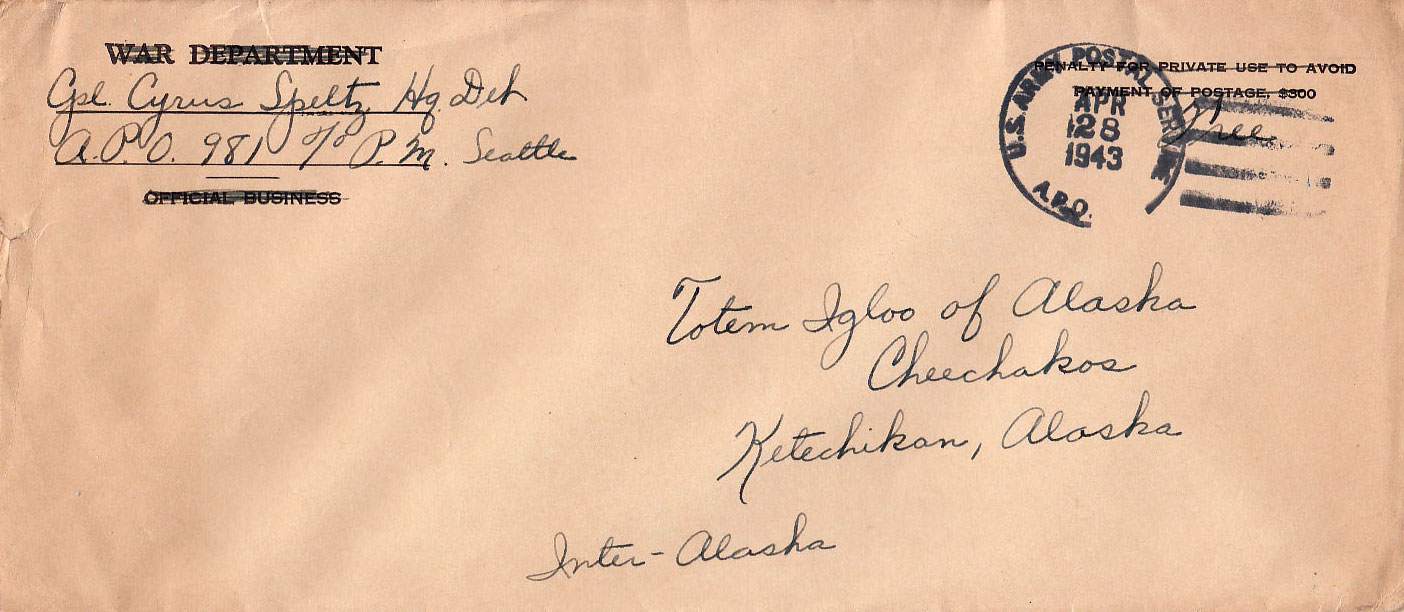 WAR DEPARTMENT
Cpl. Cyrus Speltz Hq. Det
A.P.O. 981 c/o P.M. Seattle
OFFICIAL BUSINESS
PENALTY FOR PRIVATE USE TO AVOID
PAYMENT OF POSTAGE, $300
Free
U.S. ARMY POSTAL SERVICE
APR
28
1943
A.P.O.
Totem Igloo of Alaska
Cheechakos
Ketechikan, Alaska
Inter-Alaska